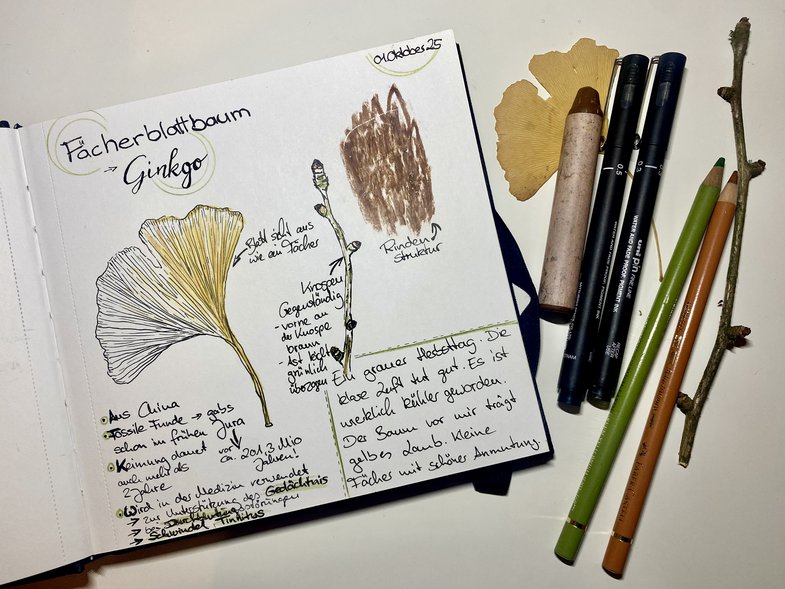 01. Oktober 25
Fächerblattbaum
→ Ginkgo
Blatt sieht aus
wie ein Fächer
Rinden
struktur
Knospen
Gegenständig
- vorne an
der Knospe
braun
- Ast leicht
grünlich
überzogen
Aus China
Fossile Funde → gabs
schon im frühen Jura
vor
ca. 201,3 Mio
Jahren!
Keimung dauert
auch mehr als
2 Jahre
Wird in der Medizin verwendet
→ zur Unterstützung des Gedächtnis
→ bei Durchblutungsstörungen
→ Schwindel, Tinnitus
Ein grauer Herbsttag. Die
klare Luft tut gut. Es ist
merklich kühler geworden.
Der Baum vor mir trägt
gelbes Laub. Kleine
Fächer mit schöner Anmutung
0.5
0.3
uni pin FINE LINE
WATER AND FADE PROOF PIGMENT INK